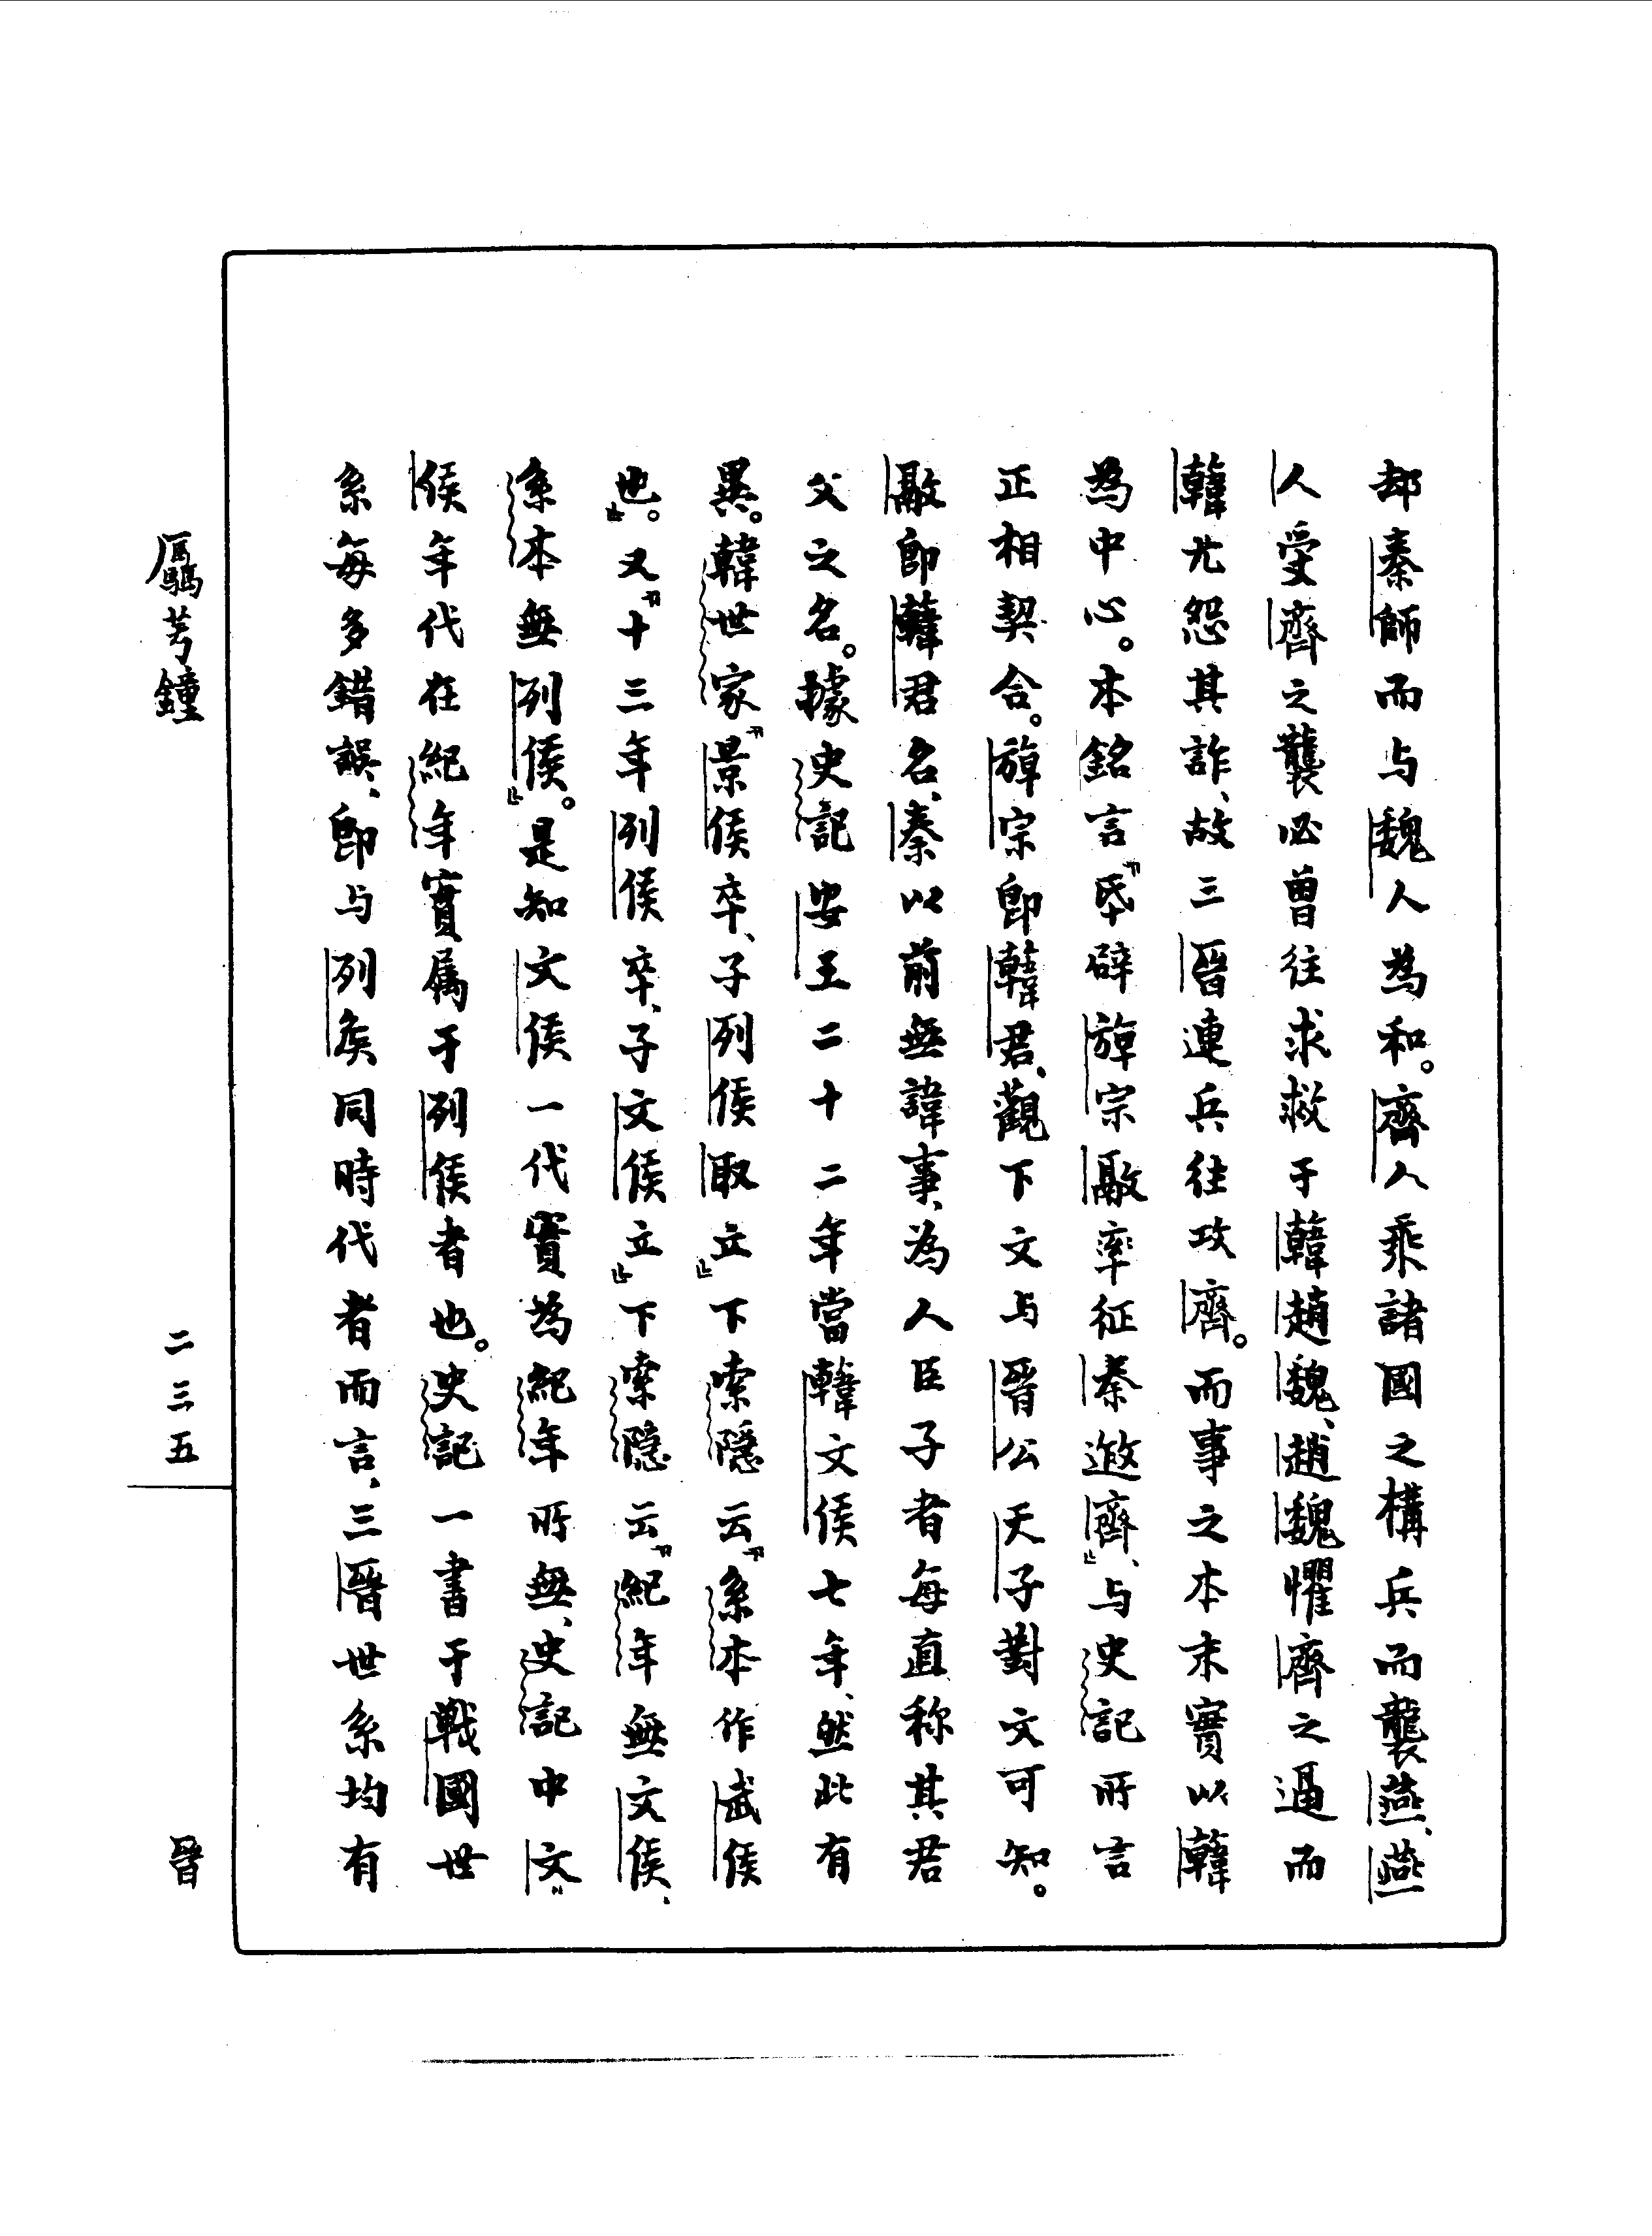 却秦師而与魏人為和。齊人乘諸國之構兵而襲燕、燕
人受齊之襲必曾往求救于韓趙魏、趙魏懼齊之逼而
韓尤怨其詐、故三晉連兵往攻齊。而事之本末實以韓
為中心。本銘言『氒辟旜宗敺率征秦遬齊』、与史記所言
正相契合。旜宗即韓君、觀下文与晉公天子對文可知。
敺即韓君名、秦以前無諱事、為人臣子者每直称其君
父之名。據史記安王二十二年當韓文侯七年、然此有
異。韓世家『景侯卒、子列侯取立』下索隱云『系本作武侯
也』。又『十三年列侯卒、子文侯立』下索隱云『紀年無文侯、
系本無列侯』。是知文侯一代實為紀年所無、史記中文
侯年代在紀年實属于列侯者也。史記一書于戰國世
系每多錯誤、即与列矦同時代者而言、三晉世系均有
芎鐘
二三五
晉